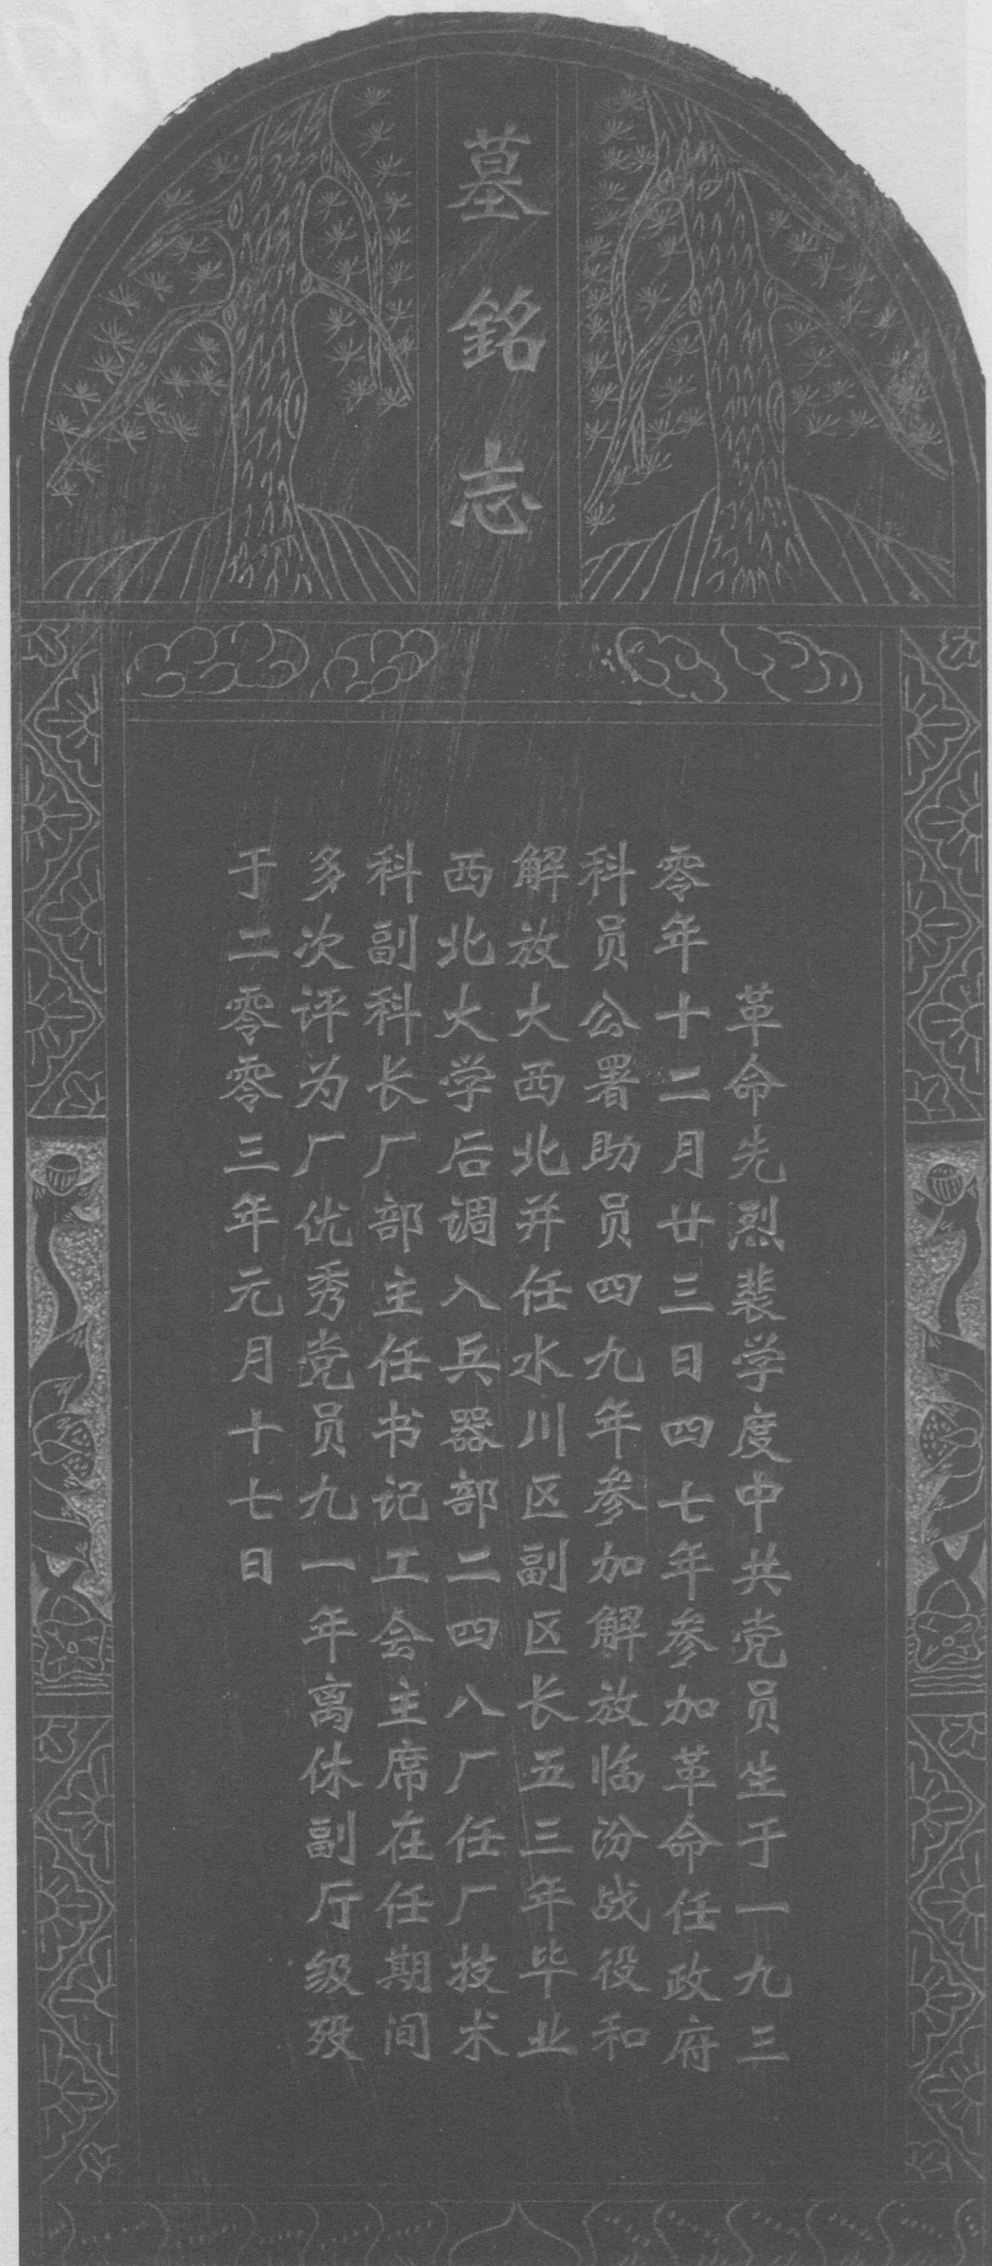 墓銘志
革命先烈裴学度中共党员生于一九三
零年十二月廿三日四七年参加革命任政府
科员公署助员四九年参加解放临汾战役和
解放大西北并任水川区副区长五三年毕业
西北大学后调入兵器部二四八厂任厂技术
科副科长厂部主任书记工会主席在任期间
多次评为厂优秀党员九一年离休副厅级殁
于二零零三年元月十七日